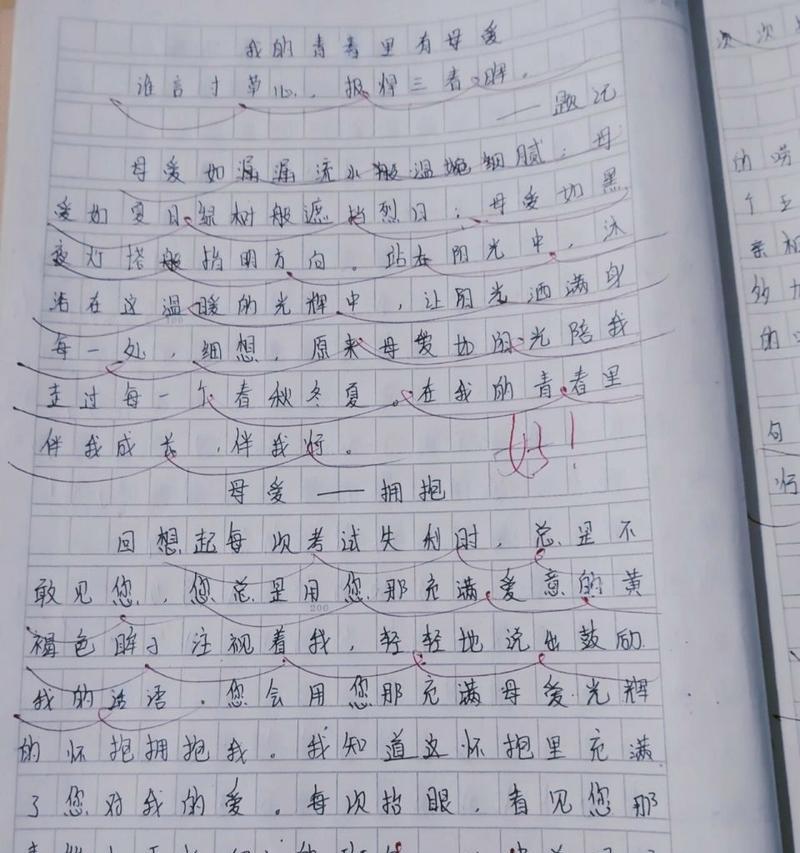 我的青春里有母爱
谁言寸草心，报得三春晖。
——题记
母爱如漏漏流水般温婉细腻；母
爱如夏日绿树般遮挡烈日；母爱如黑
夜灯塔般指明方向。站在阳光中，沐
浴在这温暖的光辉中，让阳光洒满身
每一处，细想，原来母爱如阳光陪我
走过每一个春秋冬夏。在我的青春里
伴我成长，伴我行。
好！
母爱——拥抱
回想起每次考试失利时，总是不
敢见您，您总是用您那充满爱意的黄
200
褐色眸子注视着我，轻轻地说出鼓励
我的话语，您会用您那充满母爱光辉
的怀抱拥抱我。我知道这怀抱里充满
了您对我的爱。每次抬眼，看见您那
次次
的唠
个
亲
的
句